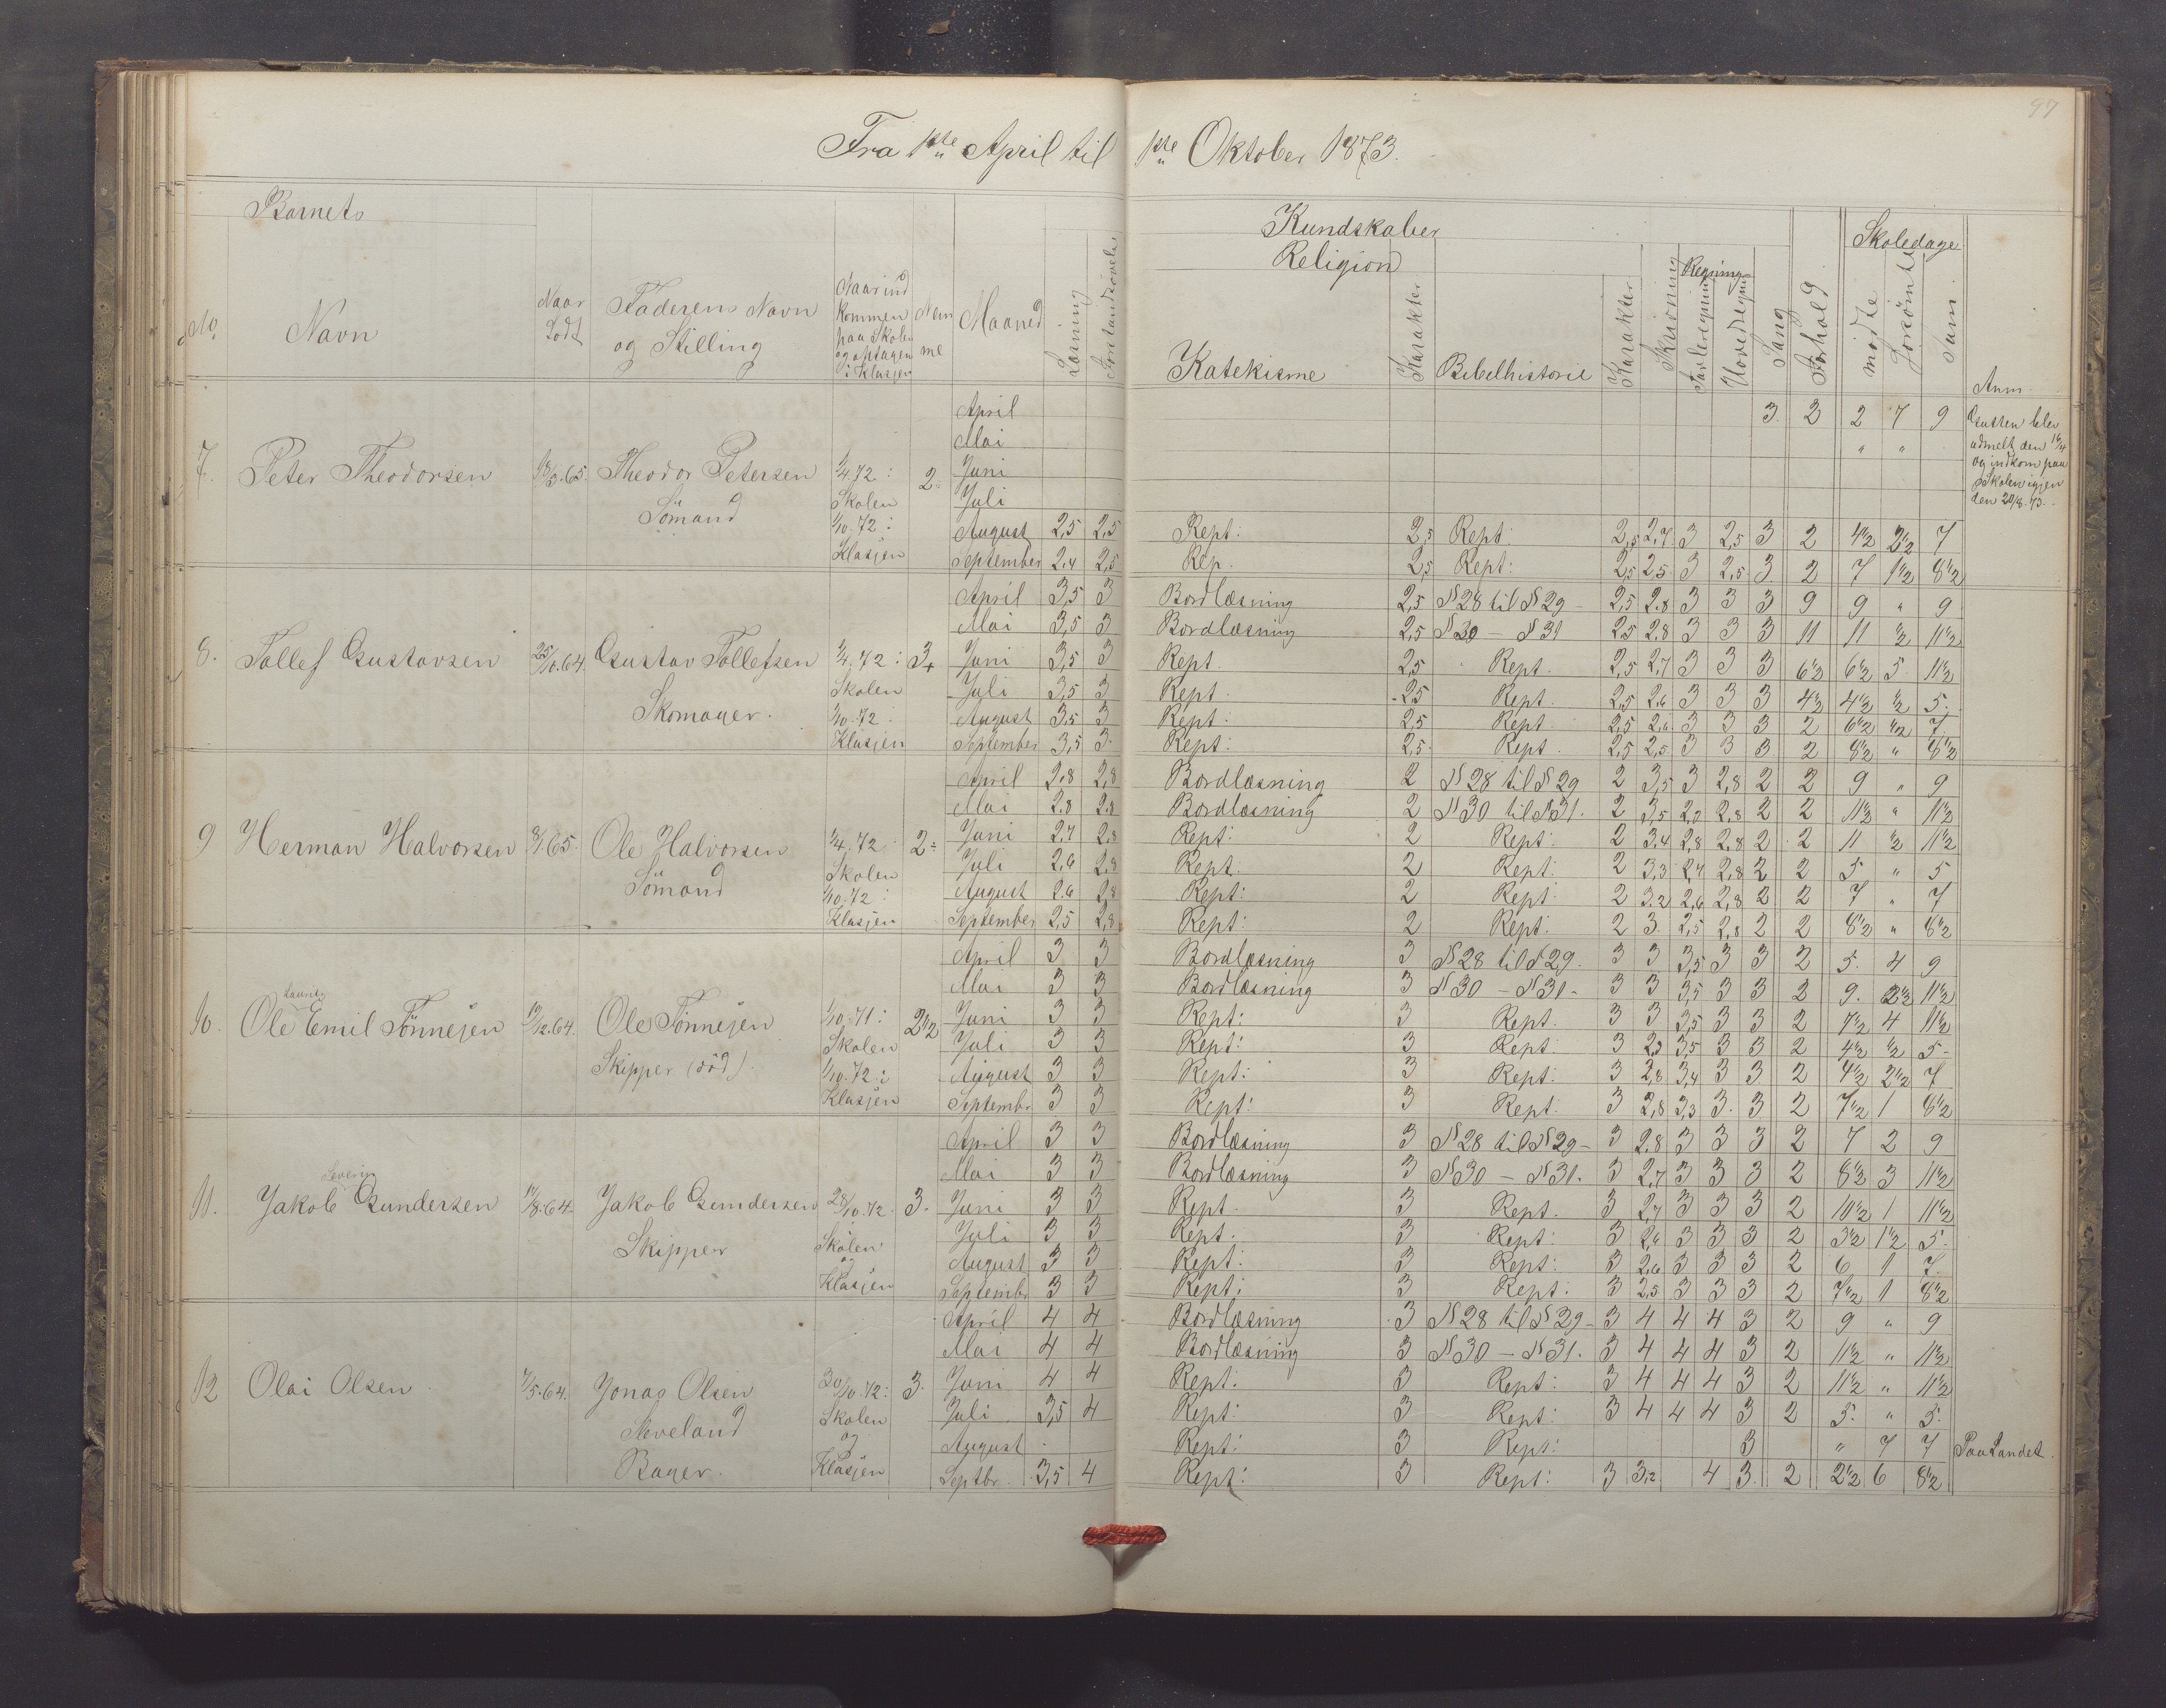 97
Fra 1ste April til 1ste Oktober 1873.
Barnets
Kundskaber
Skoledage
Religion
No. Navn Naar Født Faderens Navn og Stilling Naar indkommen paa Skolen og optagen i Klasjen Nemme Maaned Læsning Forstandsøvelse Katekisme Karakter Bibelhistorie Karakter Skrivning Regning Tavleregning Hovedregning Sang Forhold mødte forsømte Sum Anm.
7. Peter Theodorsen 18/3.65. Theodor Petersen Sømand 1/4 72: Skolen 1/10.72: Klasjen 2-
April 3. 2 2 7 9 Gutten blev
Mai " " udmelt den 16/4
Juni og indkom paa
Juli Skolen igjen
den 20/8.73.
August 2,5 2,5 Rept: 2,5 Rept: 2,5 2,7 3 2,5 3 2 4 1/2 2 1/2 7
September 2,4 2,5 Rep. 2,5 Rept: 2,5 2,5 3 2,5 3 2 7 1 1/2 8 1/2
8. Tollef Gustavsen 25/10.64. Gustav Tollefsen Skomager. 1/4.72: Skolen 1/10.72: Klasjen 3+
April 3,5 3 Bordlæsning 2,5 § 28 til § 29 - 2,5 2,8 3 3 3 9 9 " 9
Mai 3,5 3 Bordlæsning 2,5 § 30 - § 31 2,5 2,8 3 3 3 11 11 1/2 11 1/2
Juni 3,5 3 Rept. 2,5 Rept. 2,5 2,7 3 3 3 6 1/2 6 1/2 5 11 1/2
Juli 3,5 3 Rept. 2,5 Rept. 2,5 2,6 3 3 3 4 1/2 4 1/2 1/2 5.
August 3,5 3 Rept: 2,5 Rept. 2,5 2,6 3 3 3 2 6 1/2 1/2 7.
September 3,5 3. Rept: 2,5. Rept. 2,5 2,5 3 3 3 2 8 1/2 " 8 1/2
9 Herman Halvorsen 8/1.65. Ole Halvorsen Sømand 1/4.72 Skolen 1/10.72: Klasjen 2-
April 2,8 2,8 Bordlæsning 2 § 28 til § 29 2 3,5 3 2,8 2 2 9 " 9
Mai 2,8 2,8 Bordlæsning 2 § 30 til § 31. 2 3,5 2,8 2 2 11 1/2 " 11 1/2
Juni 2,7 2,8 Rept: 2 Rept: 2 3,4 2,8 2,8 2 2 11 1/2 11 1/2
Juli 2,6 2,8 Rept. 2 Rept: 2 3,3 2,8 2 2 5 " 5
August 2,6 2,8 Rept: 2 Rept: 2 3.2 2,6 2,8 2 2 7 " 7
September 2,5 2,8 Rept: 2 Rept: 2 3. 2,5 2,8 2 2 8 1/2 " 8 1/2
10. Ole Emil Tønnesen 12.64. Ole Tønnesen Skipper (død). 1/10.71: Skolen 1/10.72: Klasjen 2 1/2
April 3 3 Bordlæsning 3 § 28 til § 29. 3 3 3,5 3 3 2 5. 4 9
Mai 3 3 Bordlæsning 3 § 30 - § 31 - 3 3 3,5 3 3 2 9. 2 1/2 11 1/2
Juni 3 3 Rept: 3 Rept. 3 3 3,5 3 3 2 7 1/2 4 11 1/2
Juli 3 3 Rept: 3 Rept. 3 2,9 3,5 3 3 2 4 1/2 1/2 5 -
August 3 3 Rept: 3 Rept: 3 2,8 3,4 3 3 2 4 1/2 2 1/2 7
Septembr 3 3 Rept: 3 Rept. 3 2,8 3,3 3. 3 2 7 1/2 1 8 1/2
11. Jakob Severin Gundersen 8.64. Jakob Gundersen Skipper 28/10.72. Skolen og Klasjen 3.
April 3 3 Bordlæsning 3 § 28 til § 29 - 3 2.8 3 3 3 2 7 2 9
Mai 3 3 Bordlæsning 3 § 30 - § 31. 3 2,7 3 3 3 2 8 1/2 3 11 1/2
Juni 3 3 Rept. 3 Rept. 3 2,7 3 3 3 2 10 1/2 1 11 1/2
Juli 3 3 Rept. 3 Rept: 3 2,6 3 3 3 2 3 1/2 1 1/2 5.
August 3 3 Rept: 3 Rept: 3 2,6 3 3 3 2 6 1 7.
Septembr 3 3 Rept: 3 Rept: 3 2,5 3 3 3 2 7 1/2 1 8 1/2
12 Olai Olsen. 5.64. Jonas Olsen Neveland Bager. 30/10.72: Skolen og Klasjen 3.
April 4 4 Bordlæsning 3 § 28 til § 29 - 3 4 4 4 3 2 9 " 9
Mai 4 4 Bordlæsning 3 § 30 - § 31. 3 4 4 4 3 2 11 1/2 " 11 1/2
Juni 4 4 Rept: 3 Rept: 3 4 4 4 3 2 11 1/2 " 11 1/2
Juli 3,5 4 Rept: 3 Rept: 3 4 4 4 3 2 5. " 5.
August Rept: 3 Rept: 3 " 7 7 Paa Landet.
Septbr. 3,5 4 Rept: 3 Rept: 3 3,2 4 3. 2 2 1/2 6 8 1/2